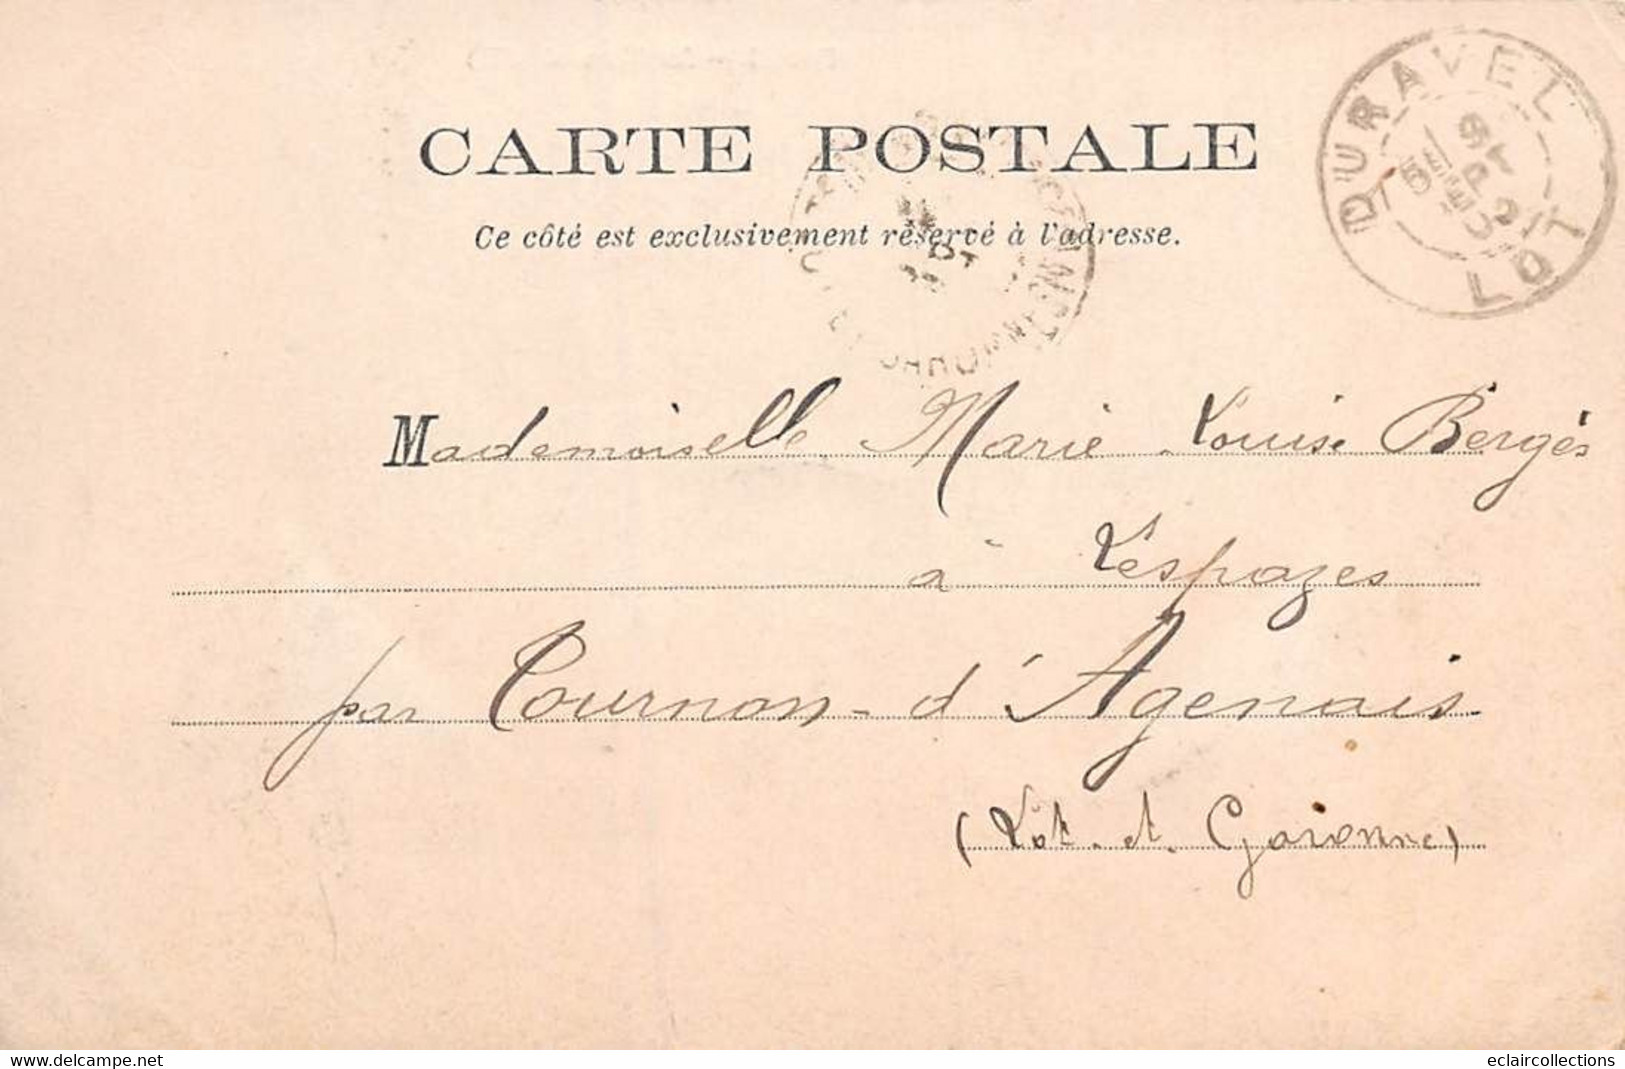 CARTE POSTALE
Ce côté est exclusivement réservé à l'adresse.
DURAVEL
LOT
Mademoiselle Marie Louise Bergès
à Lespazes
par Tournon-d'Agenais
(Lot-et-Garonne)
www.delcampe.net
eclaircollections